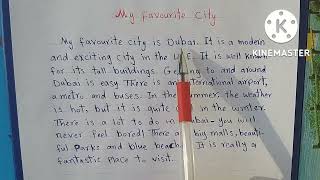 My favourite city
KINEMASTER
My favourite city is Dubai. It is a modern
and exciting city in the U E. It is well known
for its tall buildings. Ge g to and around
Dubai is easy. There is an national airport,
a metro and buses. In the summer, the weather
is hot, but it is quite in the winter.
There is a lot to do in bai - you will
never feel bored! There a big malls, beauti-
ful Parks and blue beach It is really a
fantastic place to visit.